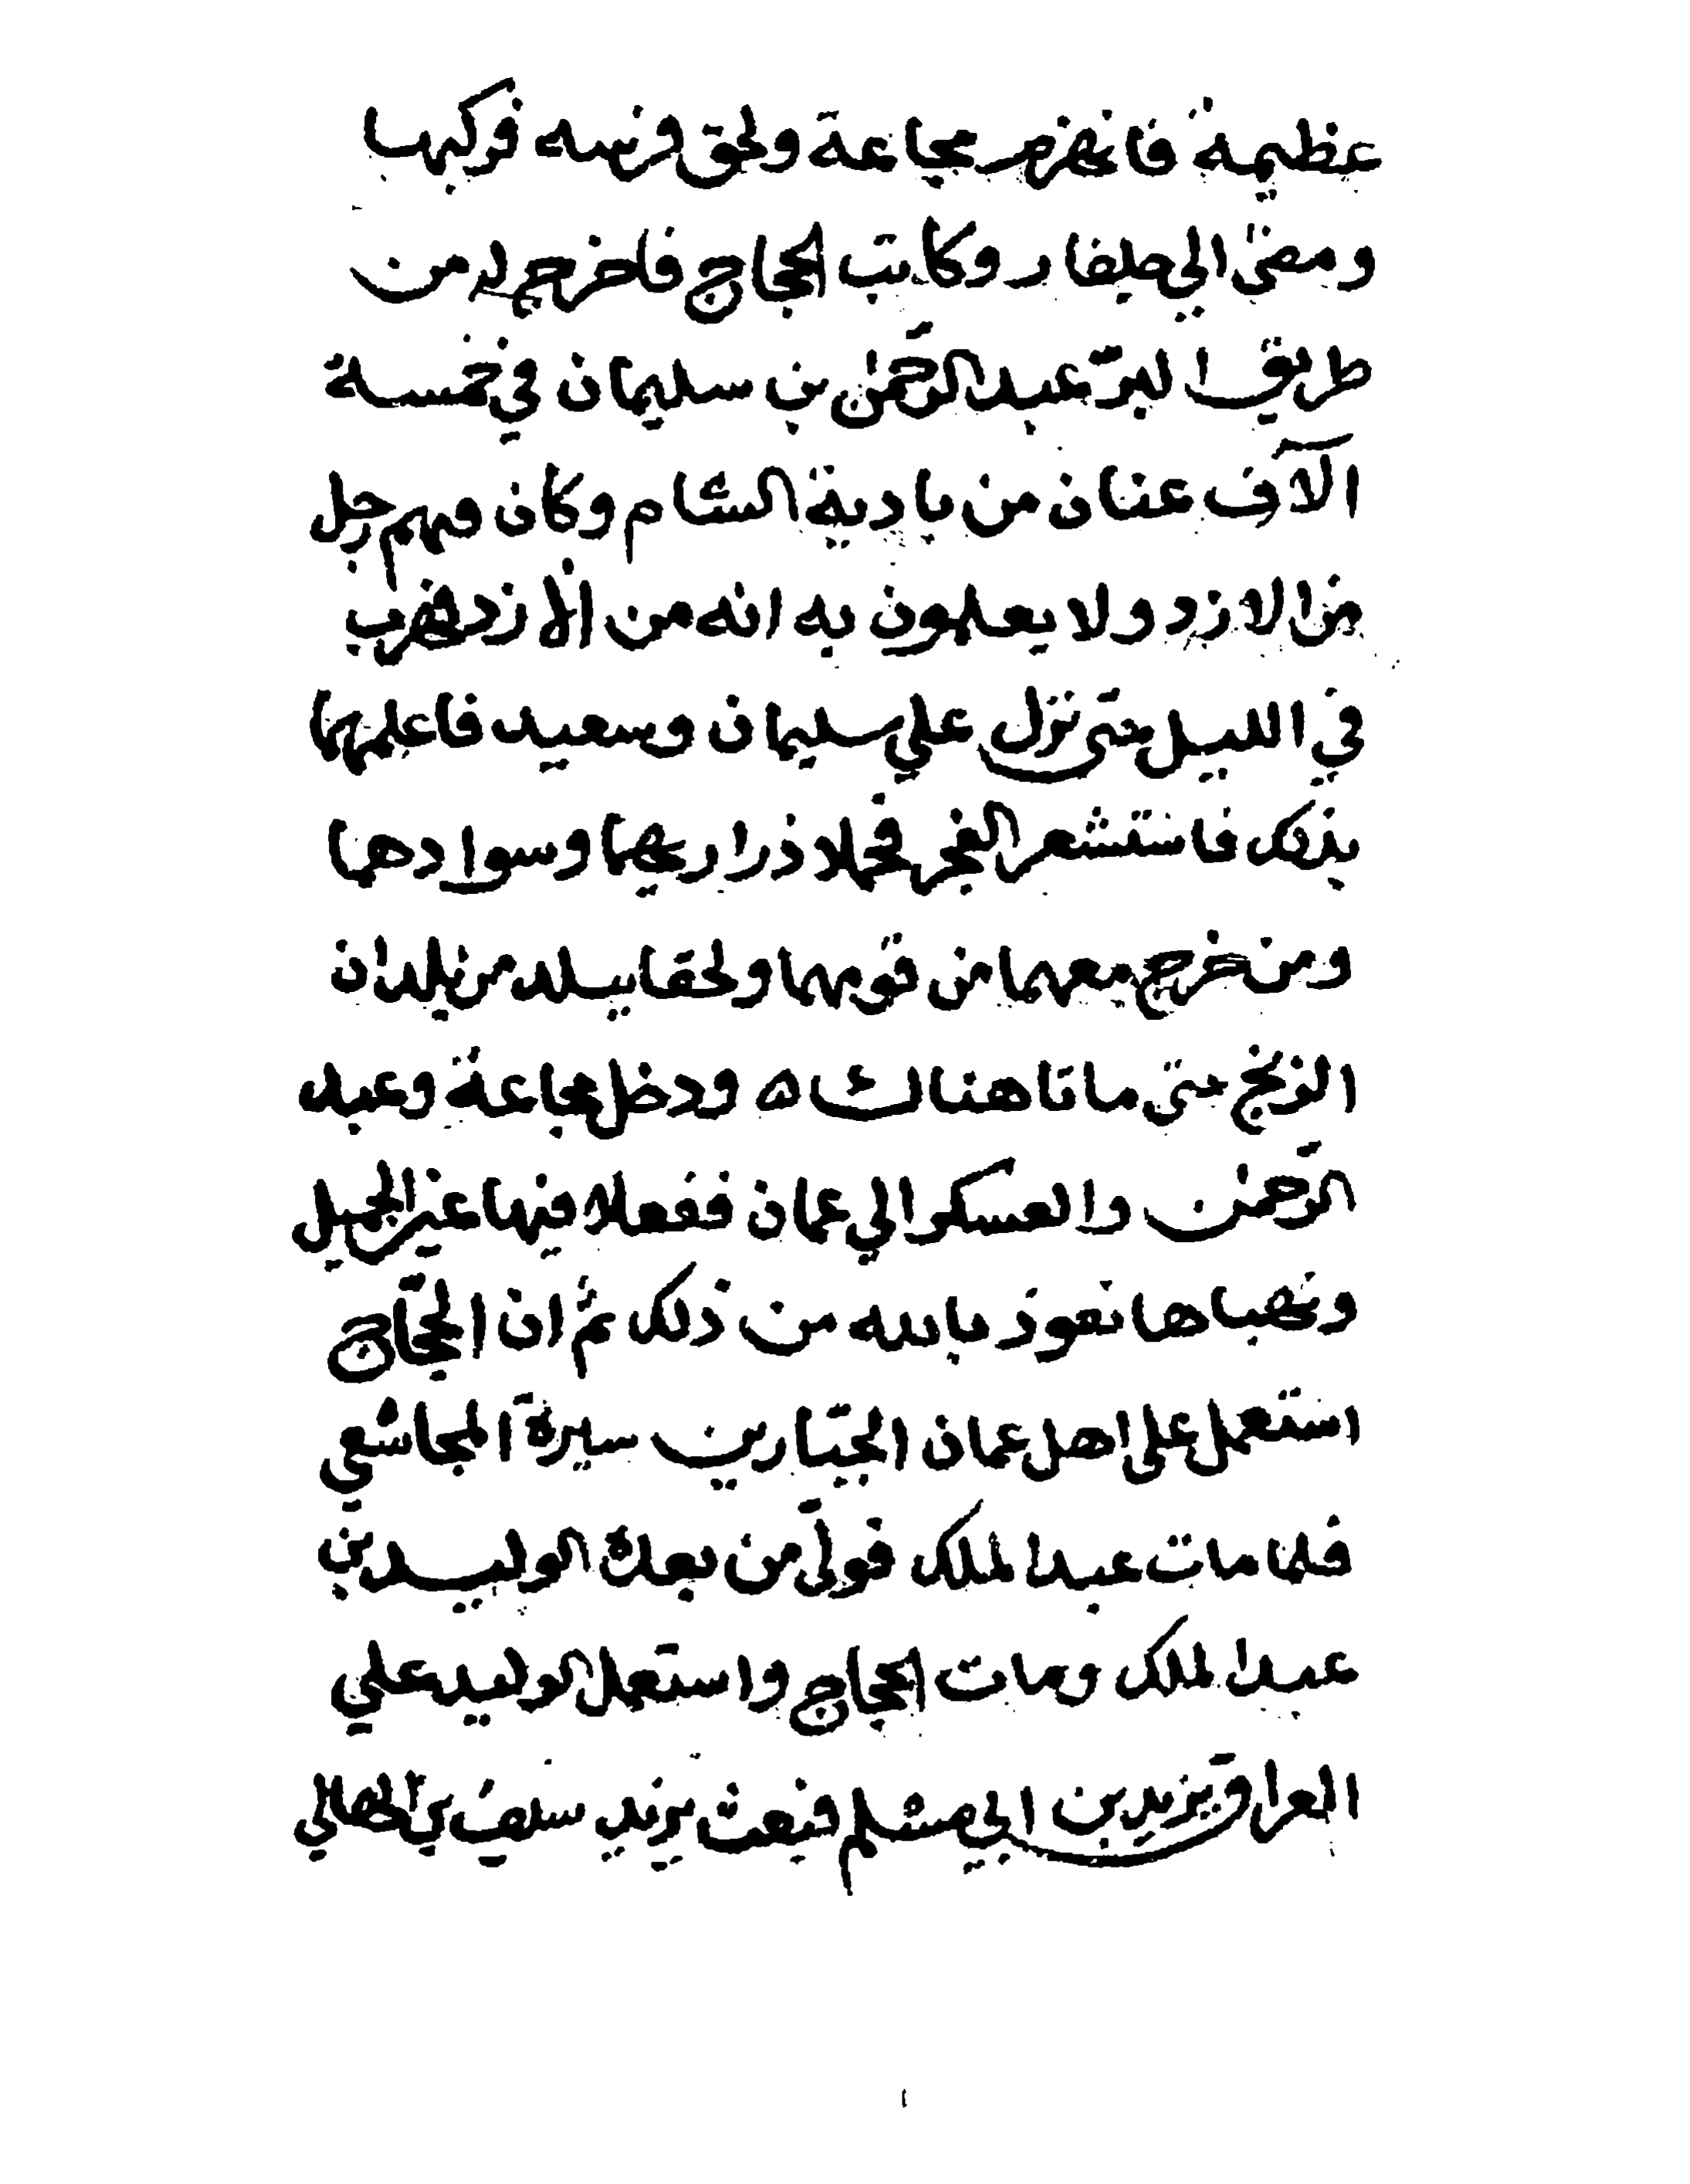 عظيمة فانهزم مجاعة ولحق فرسه فركبها
ومضى الي جلفار وكاتب الحجاج فاخرج له من
طريق البرّ عبد الرّحمٰن بن سليمان في خمسة
آلآف عنان من بادية الشام وكان فيهم رجل
من الازد ولا يعلمون به انه من الأزد فهرب
في الليل حتى نزل علي سليمان وسعيد فاعلمهما
بذلك فاستشعر الفجر فحملا ذراريهما وسوادهما
ومن خرج معهما من قومهما ولحقا ببلد من بلدان
الزنج حتى ماتا هناك ه ودخل مجاعة وعبد
الرّحمن والعسكر الي عمان ففعلا فيها غير الجميل
ونهباها نعوذ بالله من ذلك ثم ان الحجّاج
استعمل على اهل عمان الجبّارين سيرة المجاشعي
فلما مات عبد الملك فولّى من بعده الوليد بن
عبد الملك ومات الحجاج واستعمل الوليد علي
العراق يزيد بن ابي مسلم فبعث يزيد سيف بن الهاني